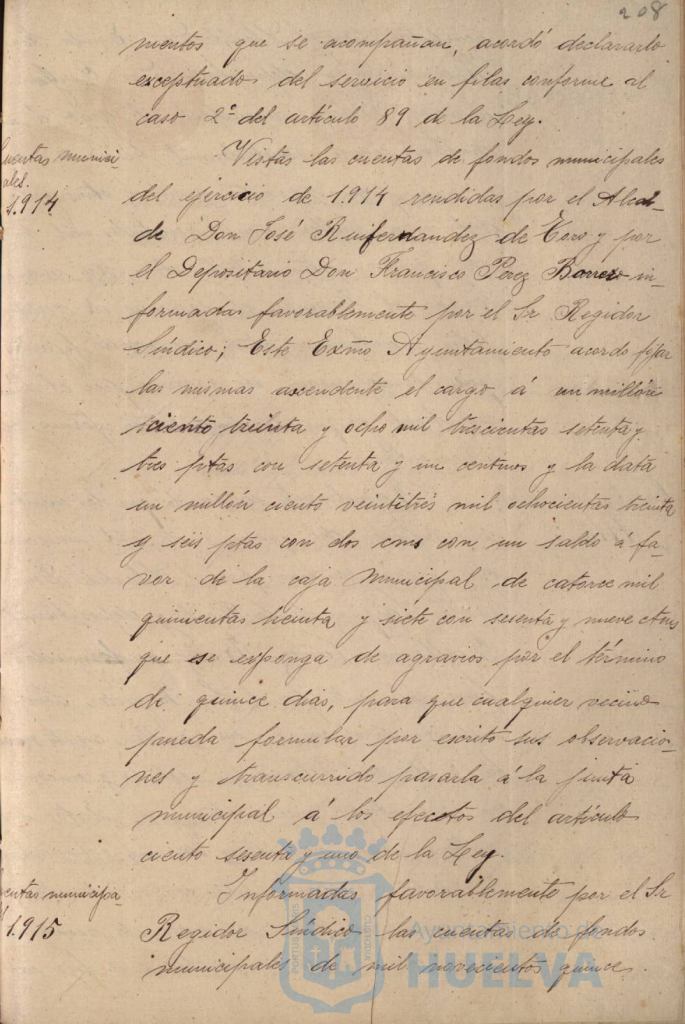 208
mentos que se acompañan, acordó declararlo
exceptuado del servicio en filas conforme al
caso 2º del artículo 89 de la Ley.
cuentas munici-
ales.
1.914
Vistas las cuentas de fondos municipales
del ejercicio de 1.914 rendidas por el Alcal-
de Don José Ruifernandez de Toro y por
el Depositario Don Francisco Perez Borrero in-
formadas favorablemente por el Sr Regidor
Síndico; Este Exmo Ayuntamiento acordo fijar
las mismas ascendente el cargo á un millón
ciento treinta y ocho mil trescientas setenta y
tres ptas con setenta y un centimos y la data
un millón ciento veintitrés mil ochocientas treinta
y seis ptas con dos cms con un saldo á fa-
vor de la caja Municipal de catorce mil
quinientas treinta y siete con sesenta y nueve ctms
que se exponga de agravios por el término
de quince dias, para que cualquier vecino
pueda formular por escrito sus observacio-
nes y transcurrido pasarla á la junta
municipal á los efectos del artículo
ciento sesenta y uno de la Ley.
entas municipa-
1.915
Informadas favorablemente por el Sr
Regidor Síndico las cuentas de fondos
municipales de mil novecientos quince.
Ayuntamiento de
HUELVA